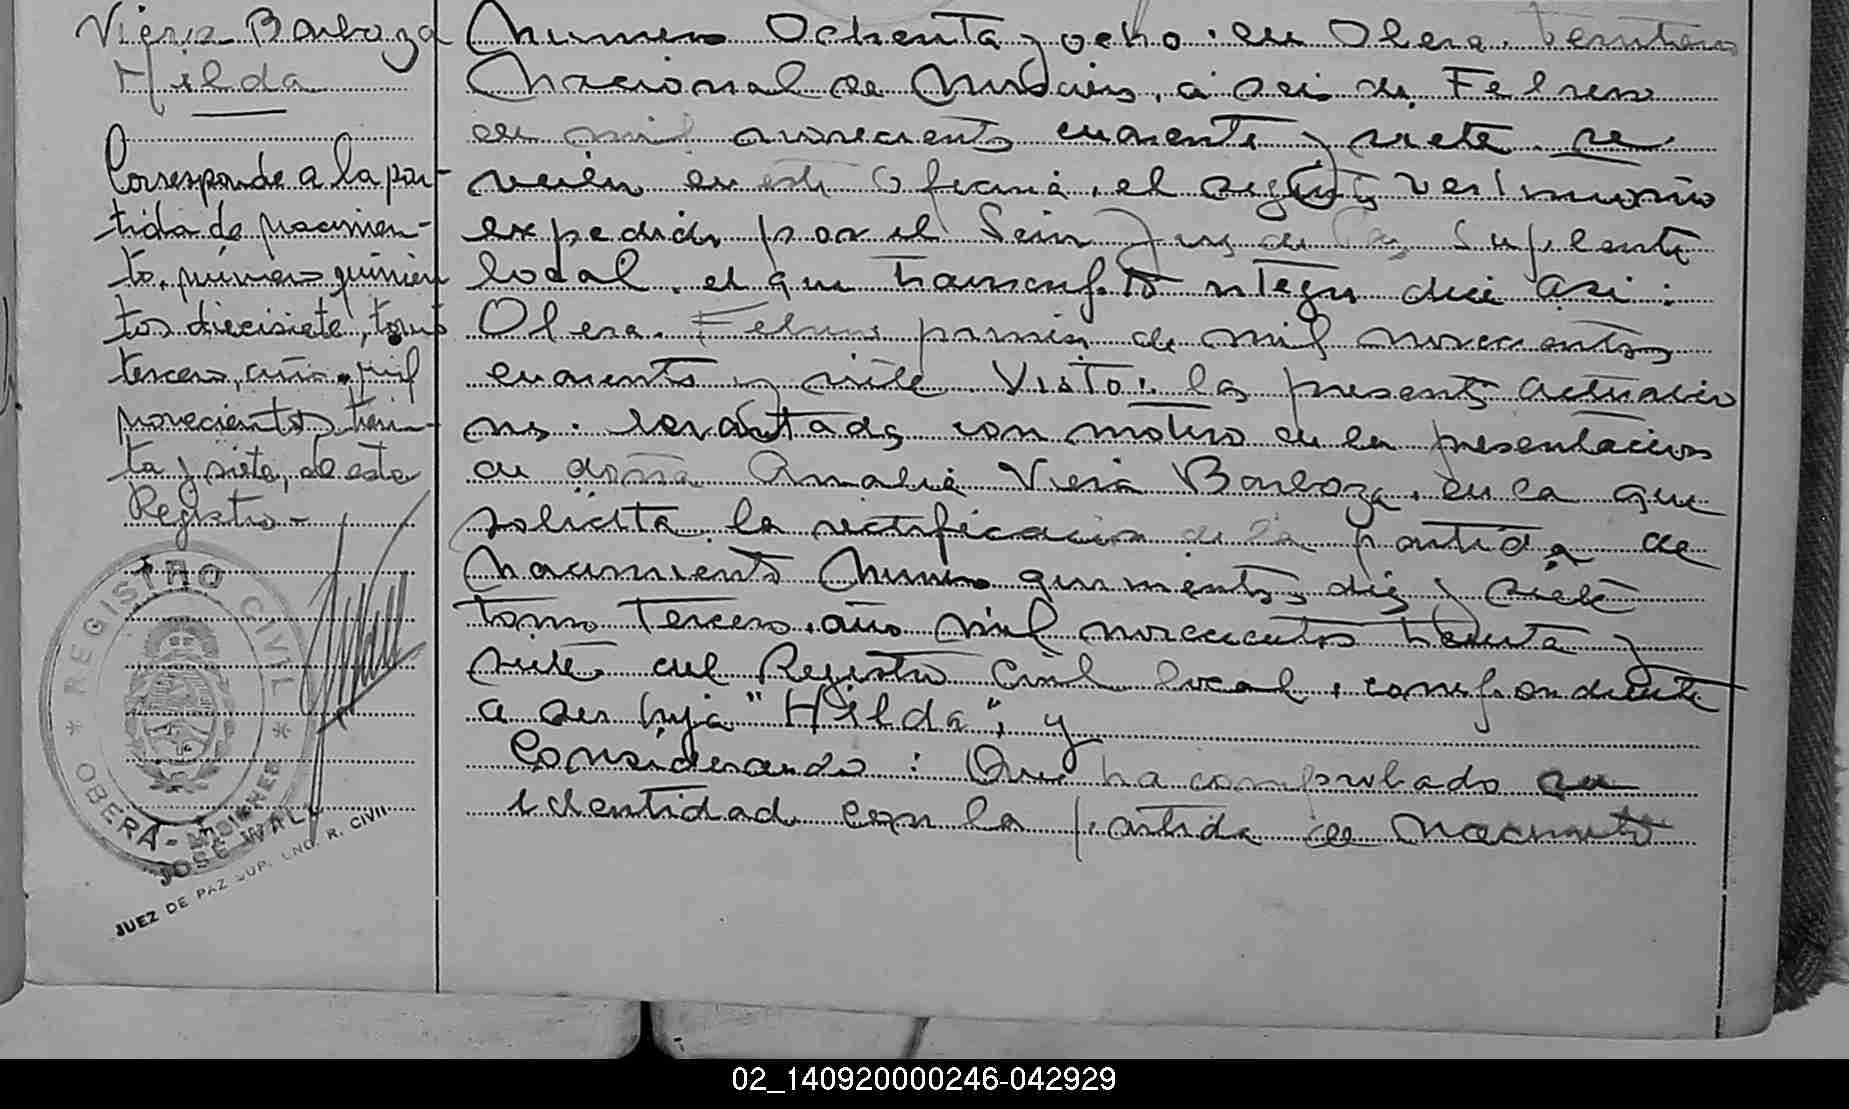 Viera Barboza
Hilda
Corresponde a la par-
tida de nacimien-
to, número quinien
tos diecisiete, tomo
tercero, año mil
novecientos trein-
ta y siete, de este
Registro-
REGISTRO CIVIL
* OBERA - MISIONES *
JOSE WALL
JUEZ DE PAZ SUP. ENC. R. CIVIL
Número Ochenta y ocho: en Obera, Territorio
Nacional de Misiones, a seis de Febrero
de mil novecientos cuarenta y siete se
recibe en esta Oficina, el siguiente testimonio
expedido por el Señor Juez de Paz Suplente
local, el que transcripto integro dice asi:
Obera, Febrero primero de mil novecientos
cuarenta y siete Visto: las presentes actuacio
nes levantadas con motivo de la presentacion
de doña Amalia Viera Barboza, en la que
solicita la rectificacion de la partida de
Nacimiento Número quinientos diez y siete
tomo Tercero, año mil novecientos treinta y
siete del Registro Civil local, correspondiente
a su hija "Hilda", y
Considerando: Que ha comprobado su
identidad con la partida de Nacimiento
02_140920000246-042929